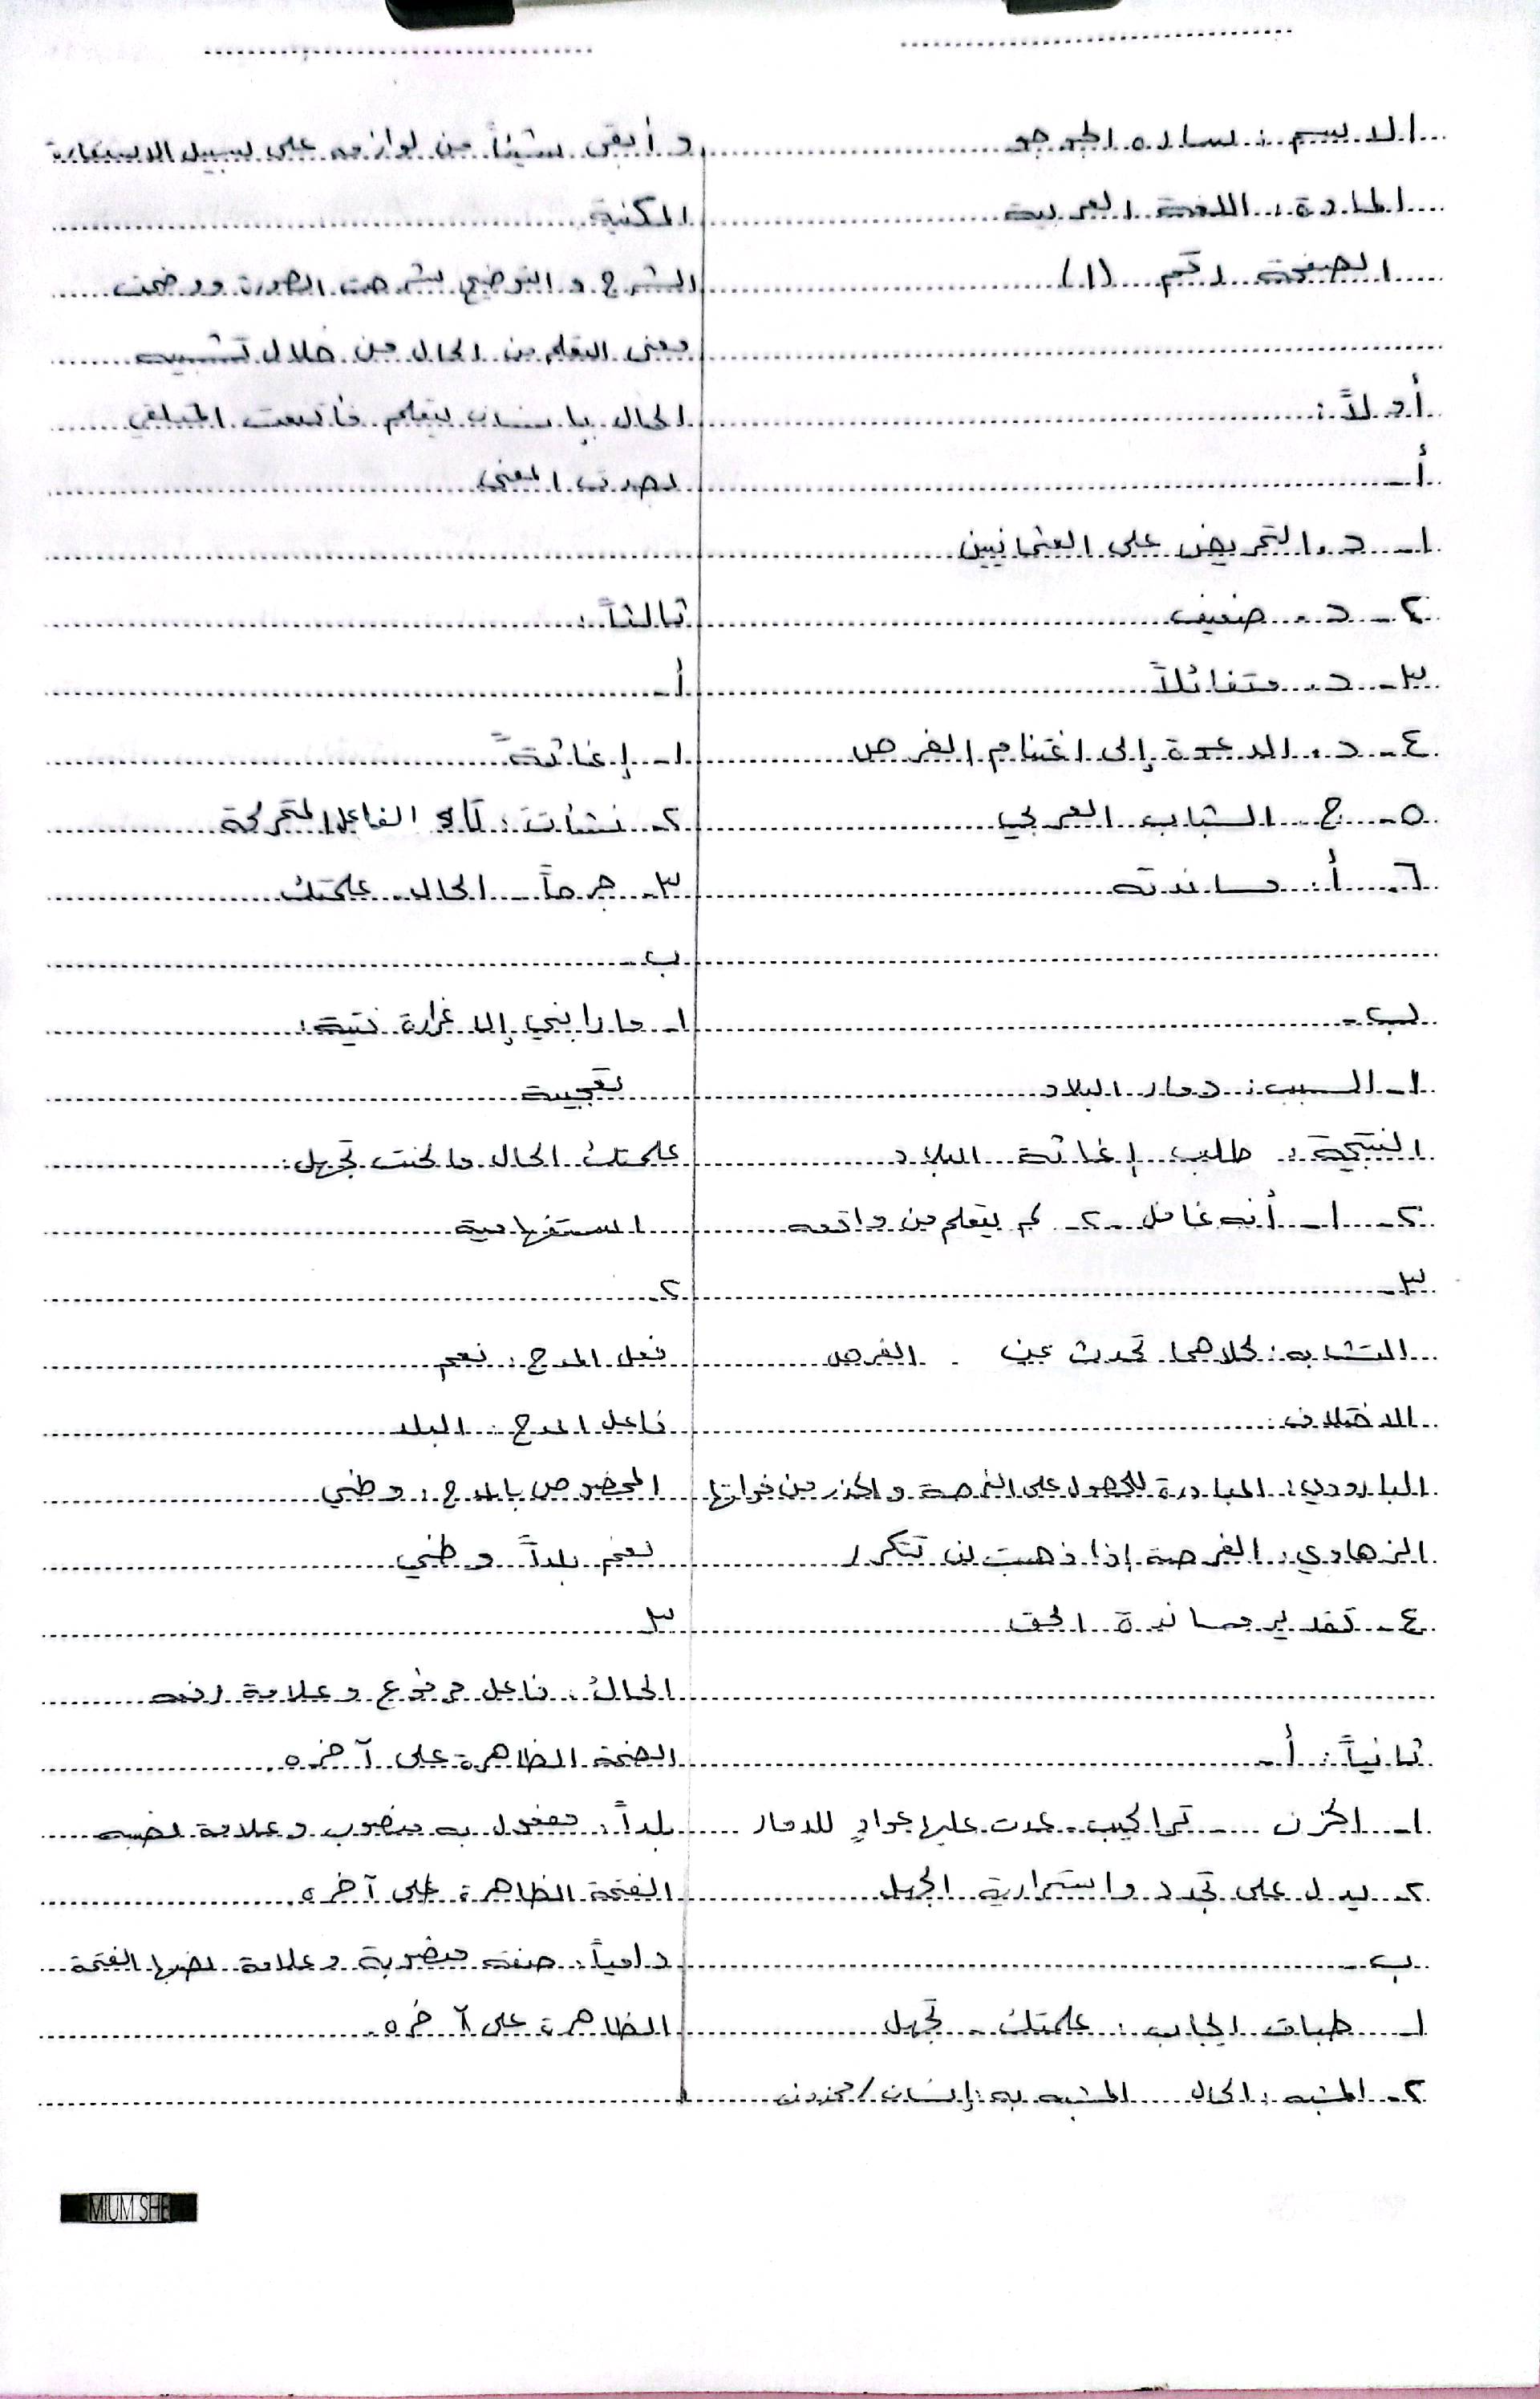 الاسم: ساره الجوجو
المادة: اللغة العربية
الصفحة رقم (١)
أولاً:
أ-
١- د. التحريض على العثمانيين
٢- د. ضعيف
٣- د. متفائلاً
٤- د. الدعوة إلى اغتنام الفرص
٥- ج. الشباب العربي
٦. أ: مساندته
ب-
١- السبب: دمار البلاد
النتيجة: طلب إغاثة البلاد
٢- ١- أنه غافل ٢- لم يتعلم من واقعه
٣-
التشابه: كلاهما تحدث عن الفرص
الاختلاف:
البارودي: المبادرة للحصول على الفرصة والحذر من فواتها
الزهاوي: الفرصة إذا ذهبت لن تتكرر
٤- تقدير مساندة الحق
ثانياً: أ-
١- الحزن - تراكيب. عدت عليها عوادٍ للدمار
٢- يدل على تجدد واستمرارية الجهل
ب-
١- طباق إيجاب: علمتك - تجهل
٢- المشبه: الحال المشبه به: إنسان/محذوف
و أبقى شيئاً من لوازمه على سبيل الاستعارة
المكنية
الشرح و التوضيح شرحت الصورة ووضحت
معنى التعلم من الحال من خلال تشبيه
الحال بإنسان يتعلم فأقنعت المتلقي
بصدق المعنى
ثالثاً:
أ-
١- إغاثةً
٢- نشأت: تاء الفاعل المتحركة
٣- جرماً - الحال - علمتك
ب-
١- ما رابني إلا غرارة فتية:
تعجبية
علمتك الحال ما كنت تجهل:
استفهامية
٢-
فعل المدح: نعم
فاعل المدح: البلد
المخصوص بالمدح: وطني
نعم بلداً وطني
٣-
الحالُ: فاعل مرفوع وعلامة رفعه
الضمة الظاهرة على آخره.
بلداً: مفعول به منصوب وعلامة نصبه
الفتحة الظاهرة على آخره.
دامياً: صفة منصوبة وعلامة نصبها الفتحة
الظاهرة على آخره.
MIUM SHE